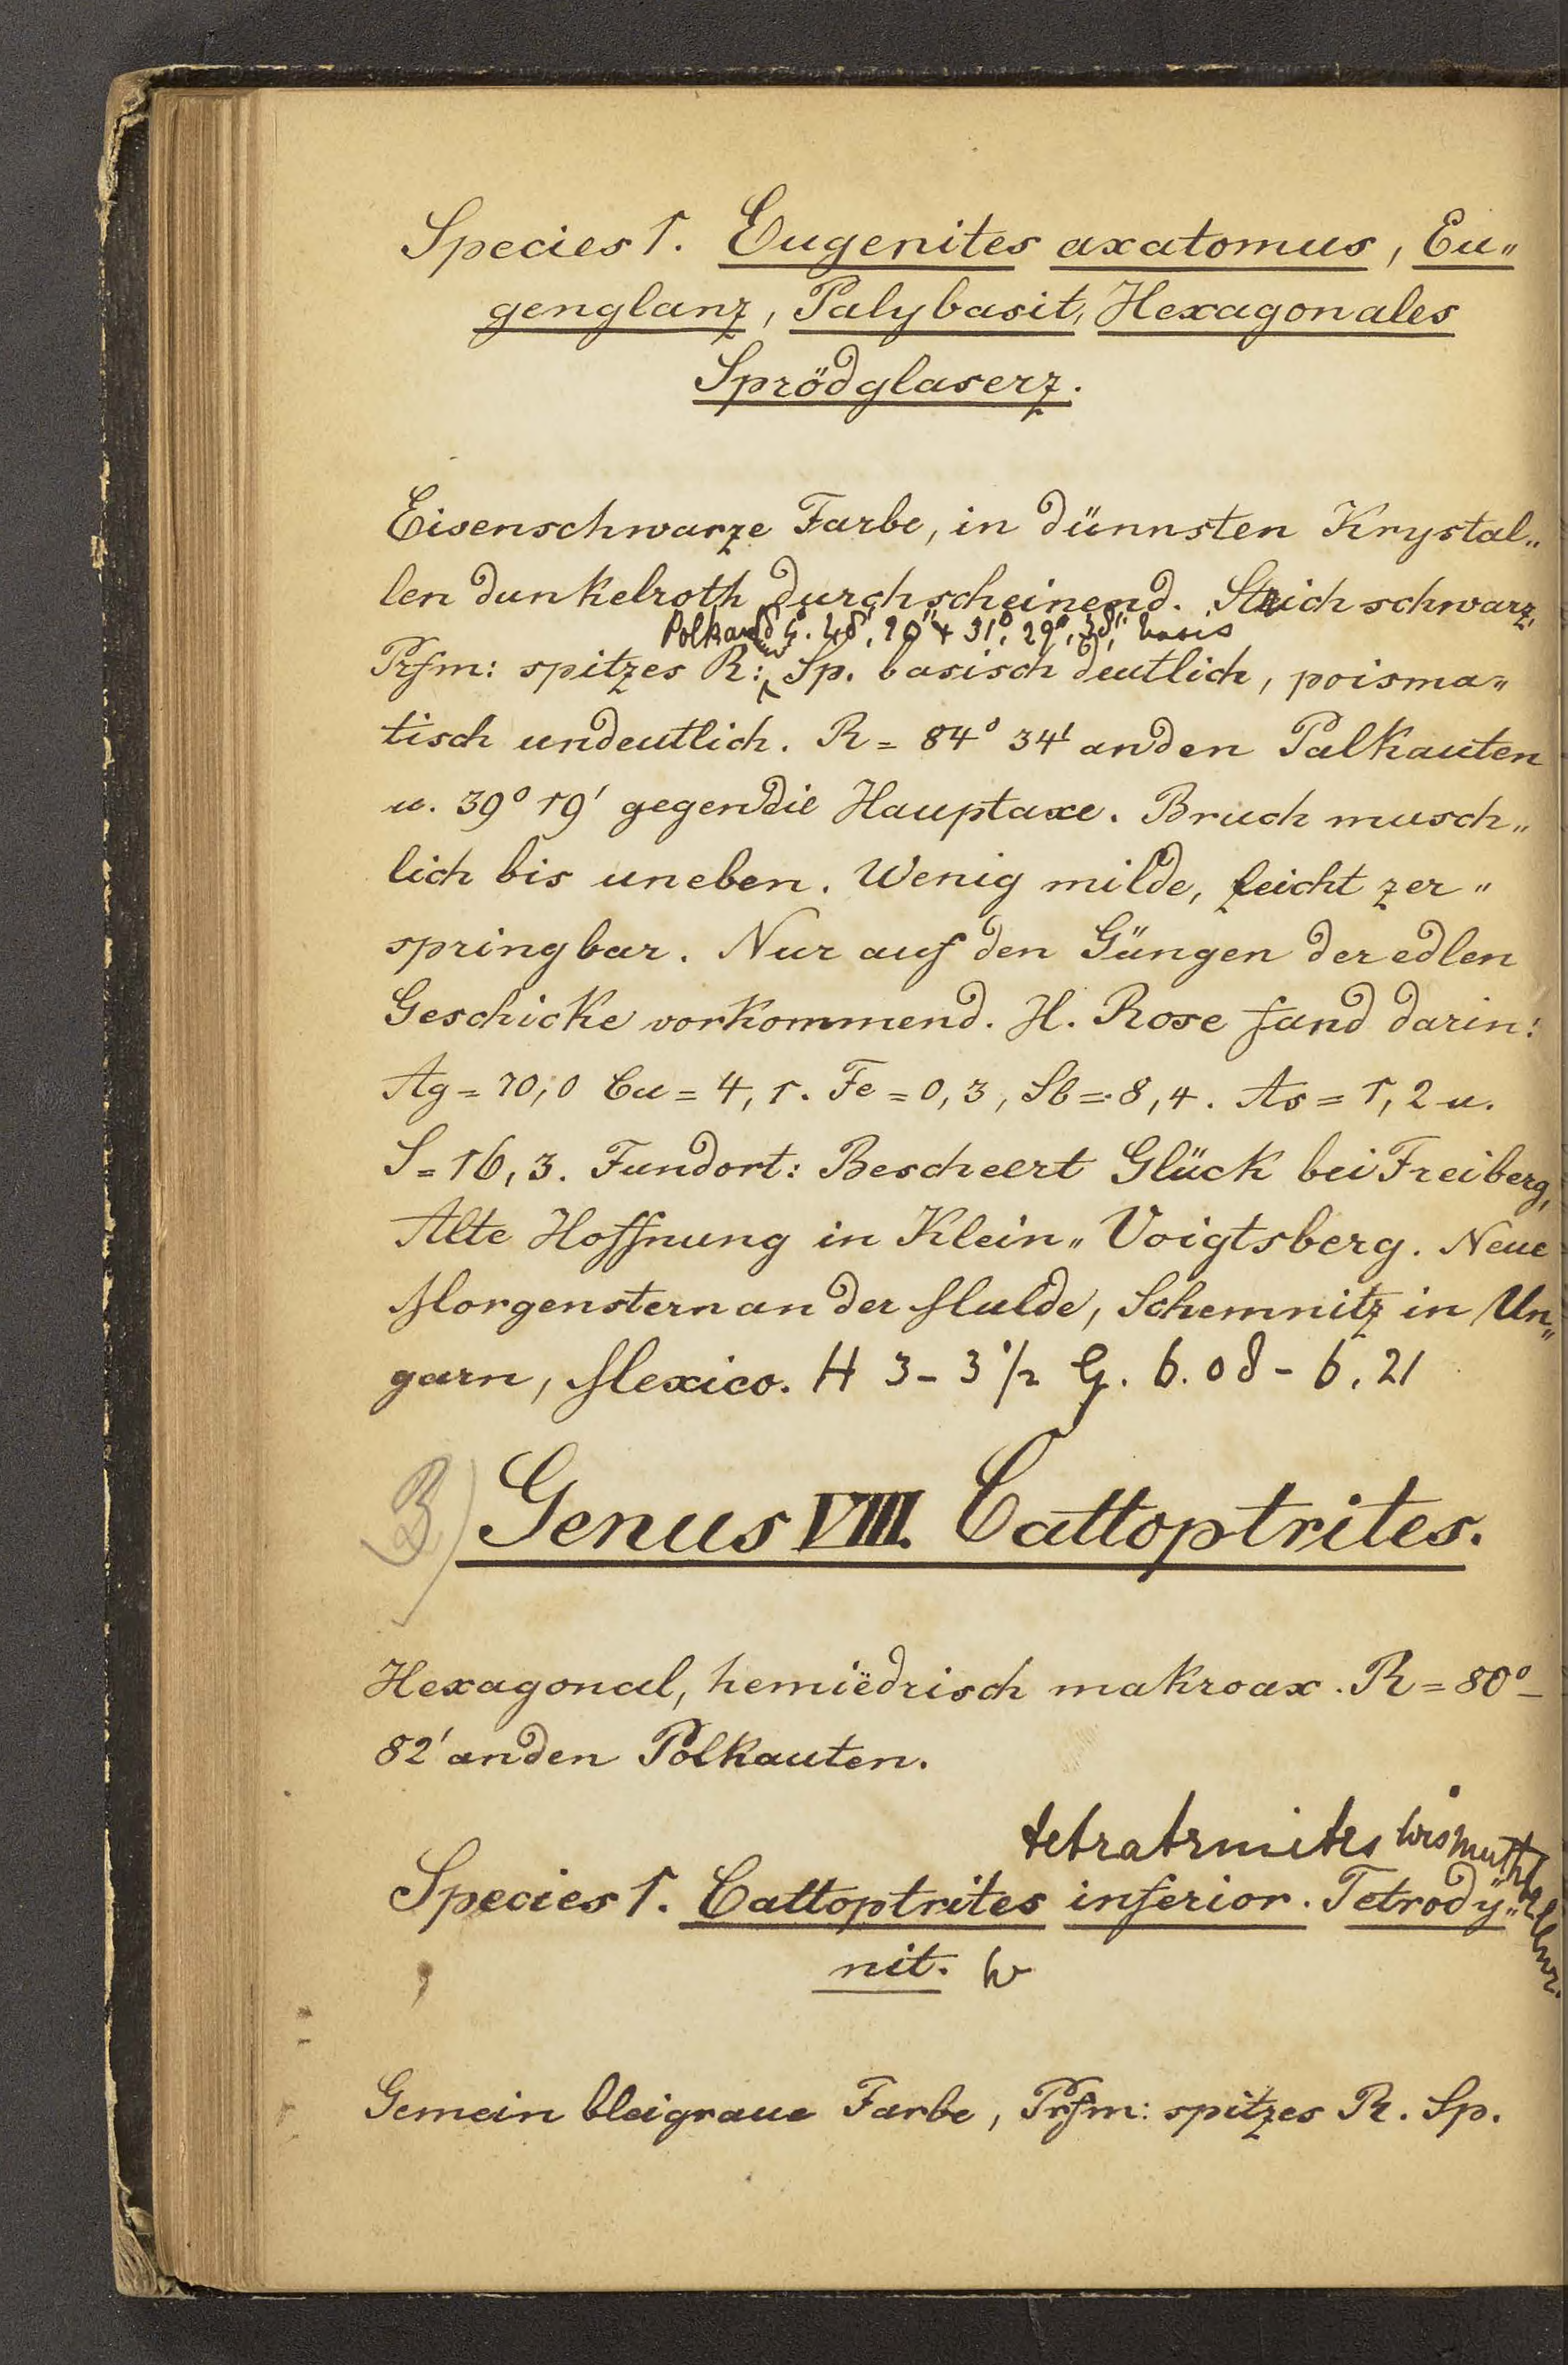 Species 1. Eugenites axatomus, Eu„
genglanz, Palybasit, Hexagonales
Sprödglaserz.
Eisenschwarze Farbe, in dünnsten Krystal„
len dunkelroth durchscheinend. Strich schwarz,
basis
Prfm: spitzes R: Sp. basisch deutlich, poisma„
tisch undeutlich. R = 84° 34' an den Palkauten
u. 39° 19' gegen die Hauptaxe. Bruch musch„
lich bis uneben. Wenig milde, leicht zer„
springbar. Nur auf den Güngen der edlen
Geschicke vorkommend. H. Rose fand darin:
Ag = 70,0 Cu = 4,1. Fe = 0,3, Sb = 8,4. As = 1,2 u.
S = 16,3. Fundort: Bescheert Glück bei Freiberg,
Alte Hoffnung in Klein„Voigtsberg. Neue
Morgenstern an der Mulde, Schemnitz in Un„
garn, Mexico. H 3 - 3 1/2 G. 6.08 - 6.21
3) Genus VIII. Cattoptrites.
Hexagonal, hemiëdrisch makroax. R = 80° -
82' an den Polkauten.
Species 1. Cattoptrites inferior. Tetrody„
nit.
Gemein bleigraue Farbe, Prfm: spitzes R. Sp.